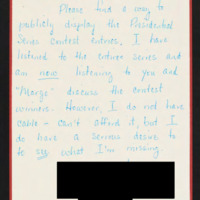 Please find a way to
publicly display the Presidential
Series contest entries. I have
listened to the entire series and
am now listening to you and
"Marge" discuss the contest
winners. However, I do not have
cable - can't afford it, but I
do have a serious desire to
to see what I'm missing